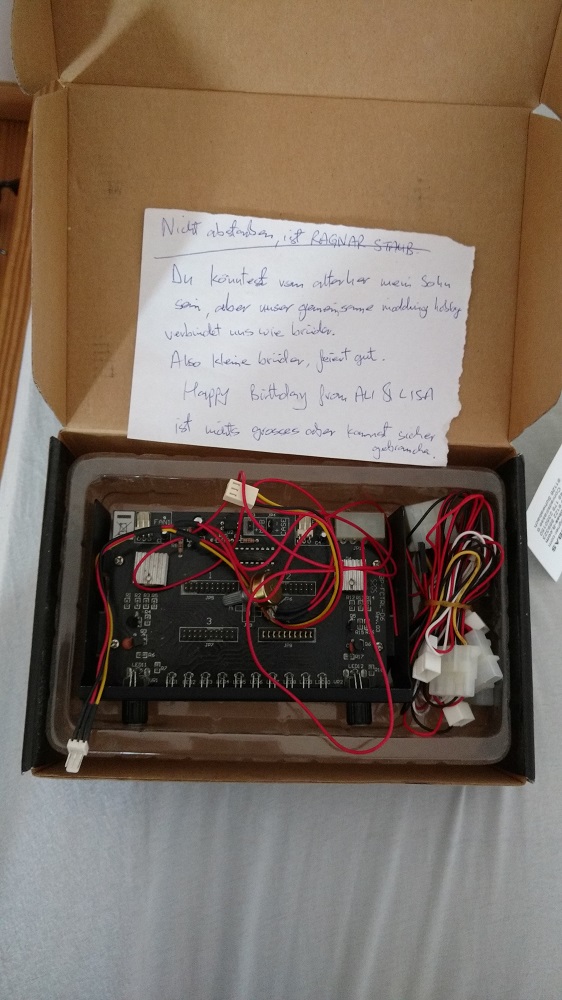 Nicht abstauben, ist RAGNAR STAUB.
Du könntest vom alterher mein Sohn
sein, aber unser gemeinsame modding hobby
verbindet uns wie brüder.
Also kleine brüder, feiert gut.
Happy Birthday from ALI & LISA
ist nichts grosses aber kannst sicher
gebrauche.
FAN1
CASE
JP5
3
JP7
JP6
LED1
LED2
R6
R7
R17
VR1